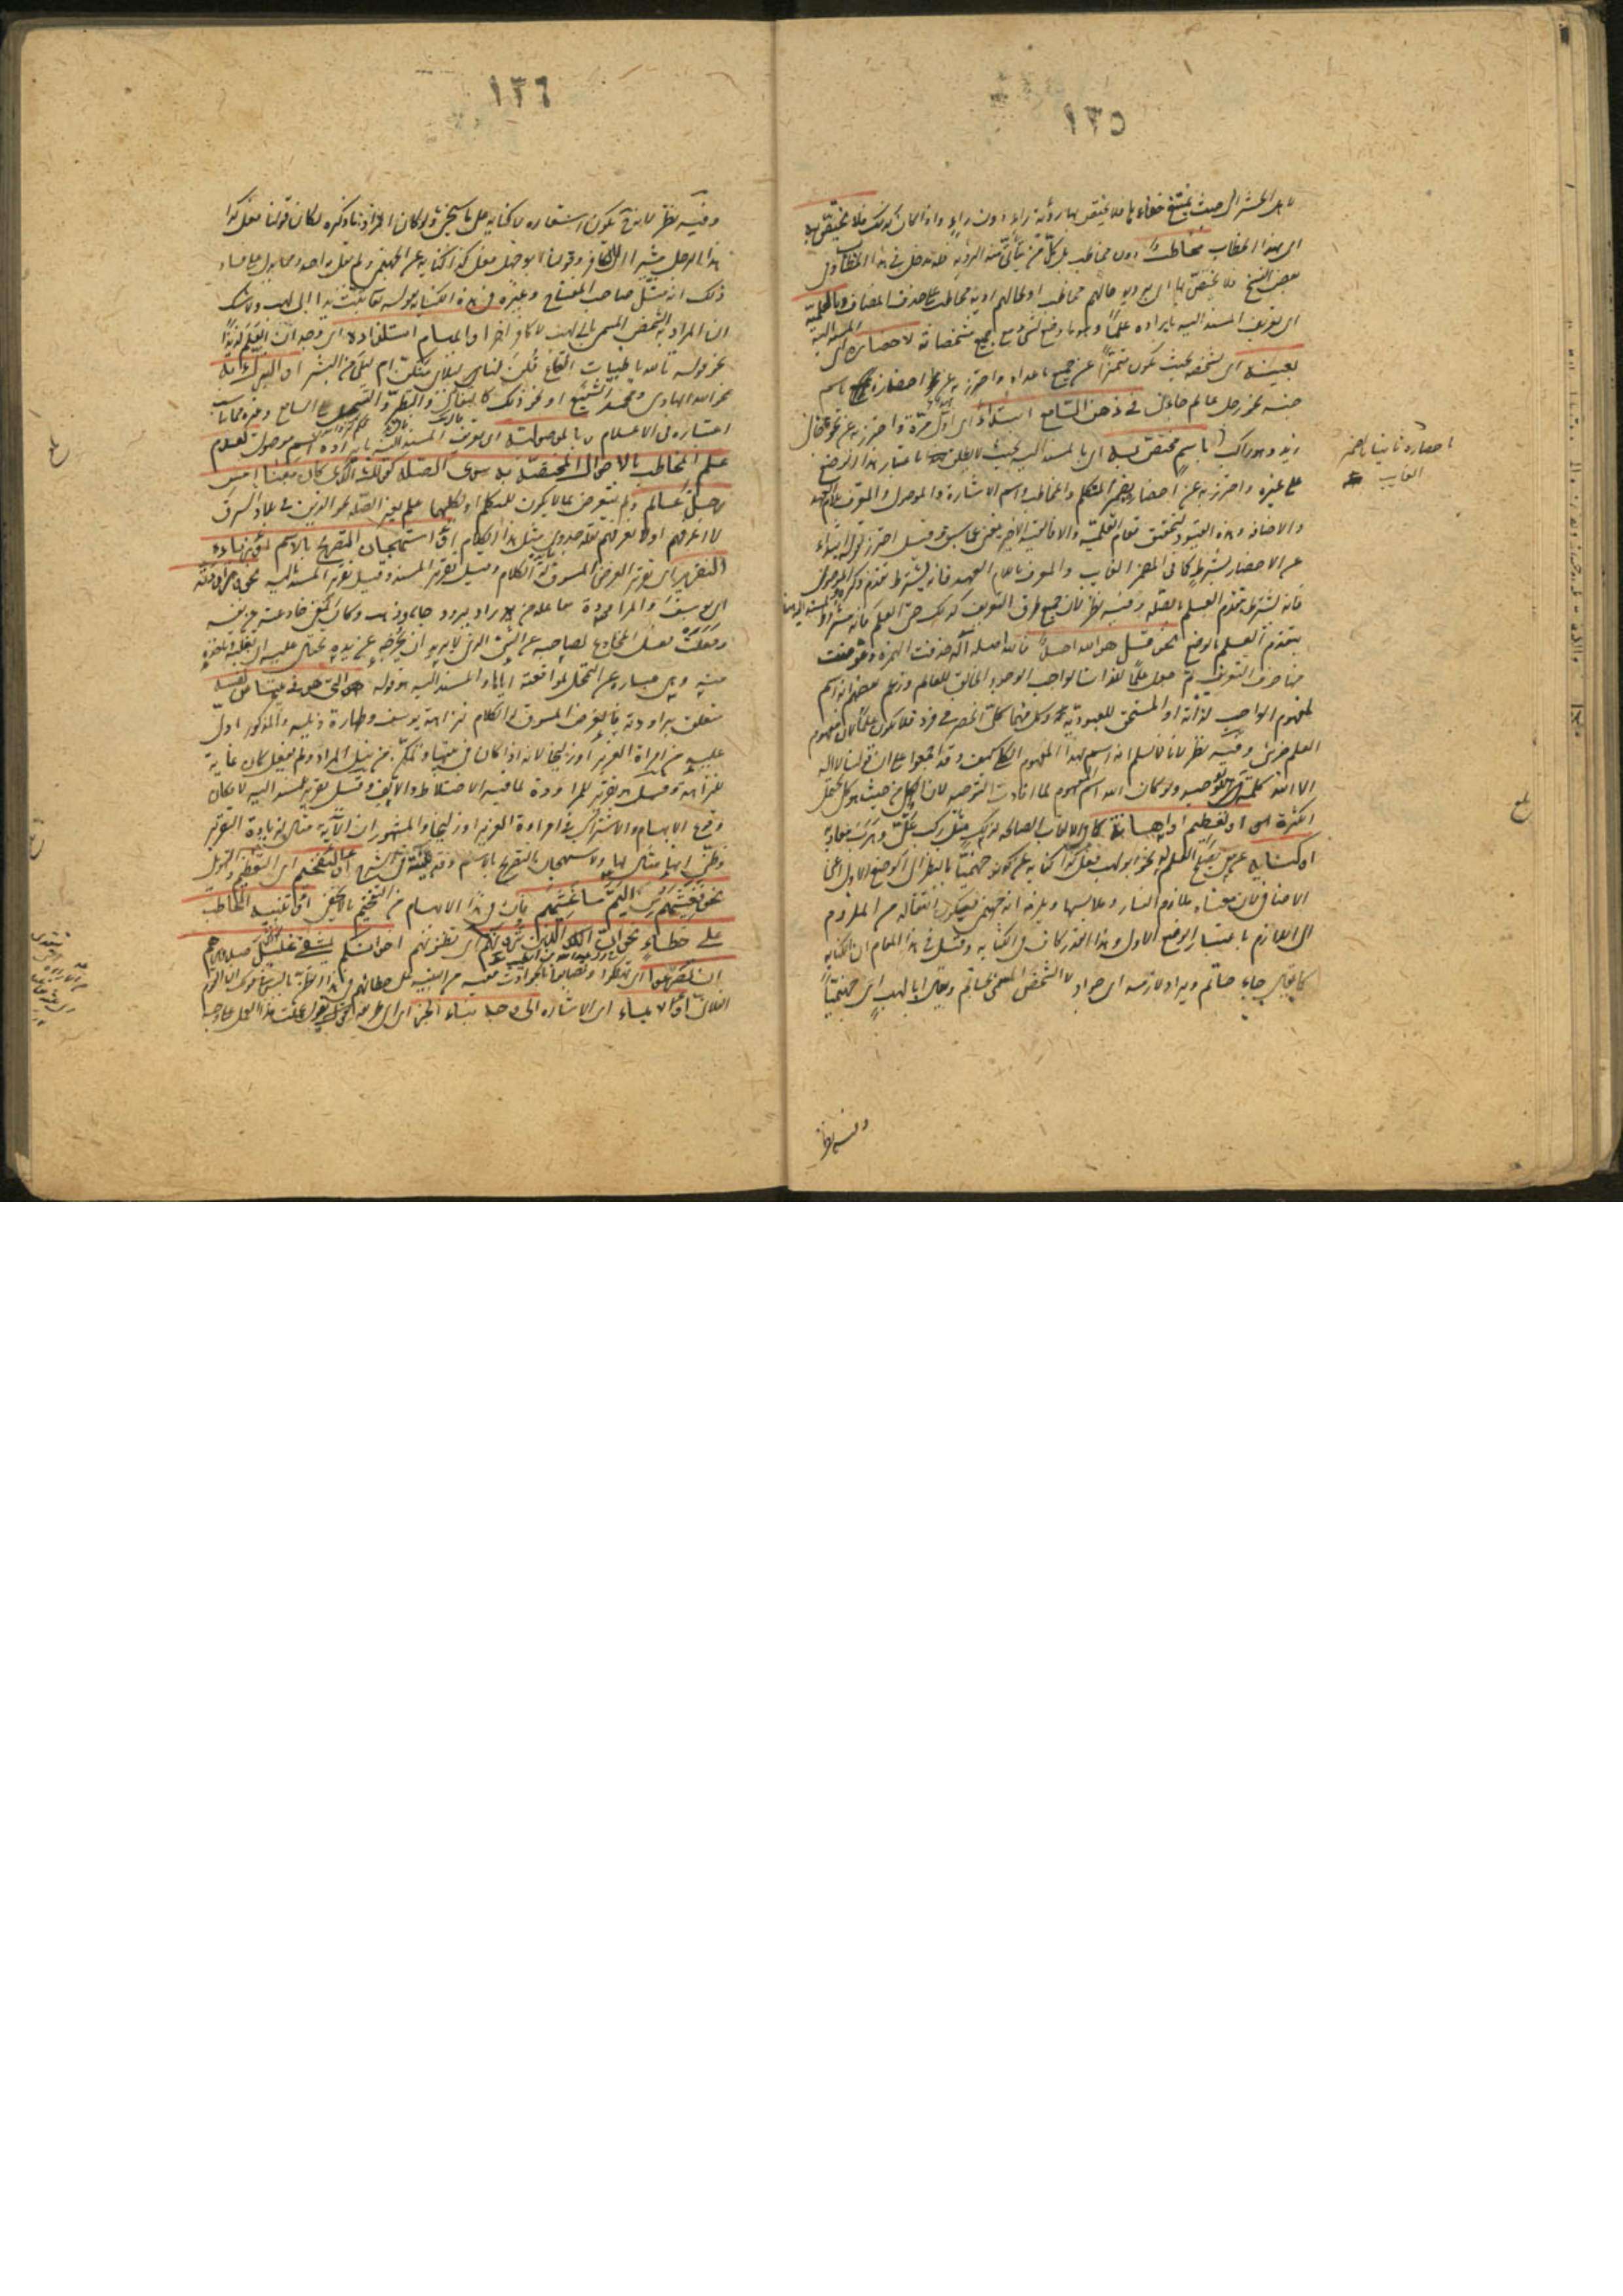 ١٣٥
لاهل المحشر الى حيث يمتنع خفاؤها فلا يختص بها رؤية راء دون راء واذا كان كذلك فلا يختص به
اى بهذا الخطاب مخاطب دون مخاطب بل كل من يتأتى منه الرؤية فله مدخل فى هذا الخطاب وفى
بعض النسخ فلا يختص بها اى برؤية حالهم مخاطب او بحالهم رؤية مخاطب على حذف المضاف وبالعلمية
اى تعريف المسند اليه بايراده علما وهو ما وضع لشئ مع جميع مشخصاته لاحضاره اى المسند اليه
بعينه اى بشخصه بحيث يكون متميزا عن جميع ما عداه واحترز به عن احضاره باسم
جنسه نحو رجل عالم جاءنى فى ذهن السامع ابتداء اى اول مرة واحترز به عن نحو جاءنى
زيد وهو راكب باسم مختص به اى بالمسند اليه بحيث لا يطلق باعتبار هذا الوضع
على غيره واحترز به عن احضاره بضمير المتكلم والمخاطب واسم الاشارة والموصول والمعرف بلام العهد
والاضافة وهذه القيود لتحقيق مقام العلمية والا فالقيد الاخير مغن عما سبق وقيل احترز بقوله ابتداء
عن الاحضار بشرط كما فى المضمر الغائب والمعرف بلام العهد فانه يشترط تقدم ذكره والموصول
فانه يشترط تقدم العلم بالصلة وفيه نظر لان جميع طرق التعريف كذلك حتى العلم فانه مشروط
بتقدم العلم بالوضع نحو قل هو الله احد فالله اصله الاله حذفت الهمزة وعوضت
منها حرف التعريف ثم جعل علما للذات الواجب الوجود الخالق للعالم وزعم بعضهم انه اسم
لمفهوم الواجب لذاته او المستحق للعبودية له وكل منهما كلى انحصر فى فرد فلا يكون علما لان مفهوم
العلم جزئى وفيه نظر لانا لا نسلم انه اسم لهذا المفهوم الكلى كيف وقد اجمعوا على ان قولنا لا اله
الا الله كلمة توحيد ولو كان الله اسما لمفهوم لما افادت التوحيد لان الكلى من حيث هو كلى يحتمل
الكثرة او تعظيم او اهانة كما فى الالقاب الصالحة لذلك مثل ركب على وهرب معاوية
او كناية عن معنى يصلح العلم له نحو ابو لهب فعل كذا كناية عن كونه جهنميا بالنظر الى الوضع الاول اعنى
الاضافى لان معناه ملازم النار وملابسها ويلزمه انه جهنمى فيكون انتقالا من الملزوم
الى اللازم باعتبار الوضع الاول وهذا القدر كاف فى الكناية وقيل فى هذا المقام ان الكناية
كما يقال جاء حاتم ويراد لازمه اى جواد لا الشخص المسمى بحاتم ويقال ابا لهب اى جهنميا
احضاره ثانيا بالضمير
الغائب
وفيه نظر
١٣٦
وفيه نظر لانه ح يكون استعارة لا كناية على ما سيجئ ولو كان المراد ما ذكره لكان قولنا فعل كذا
هذا الرجل مشيرا الى الكافر وقولنا ابو جهل فعل كذا كناية عن الجهنمى ولم يقل به احد ومما يدل على فساد
ذلك انه مثل صاحب المفتاح وغيره فى هذه الكناية بقوله تعالى تبت يدا ابى لهب ولا شك
ان المراد به الشخص المسمى بابى لهب لا كافر اخر او ايهام استلذاذه اى وجدان العلم لذيذا
نحو قوله تالله يا ظبيات القاع قلن لنا ليلاى منكن ام ليلى من البشر او التبرك به
نحو الله الهادى ومحمد الشفيع او نحو ذلك كالتفأل والتطير والتسجيل على السامع وغيره مما يناسب
اعتباره فى الاعلام وبالموصولية اى تعريف المسند اليه بايراده اسم موصول لعدم
علم المخاطب بالاحوال المختصة به سوى الصلة كقولك الذى كان معنا امس
رجل عالم ولم يتعرض لما لا يكون للمتكلم او لكليهما علم بغير الصلة نحو الذين فى بلاد الشرق
لا اعرفهم او لا نعرفهم لقلة جدوى مثل هذا الكلام او استهجان التصريح بالاسم او زيادة
التقرير اى تقرير الغرض المسوق له الكلام وقيل تقرير المسند وقيل تقرير المسند اليه نحو وراودته
اى يوسف والمراودة مفاعلة من راد يرود جاء وذهب وكان المعنى خادعته عن نفسه
وفعلت فعل المخادع لصاحبه عن الشئ الذى لا يريد ان يخرجه عن يده يحتال عليه ان يغلبه وياخذه
منه وهى عبارة عن التمحل لمواقعته اياها والمسند اليه هو قوله التى هو فى بيتها عن نفسه
متعلق براودته فالغرض المسوق له الكلام نزاهة يوسف وطهارة ذيله والمذكور ادل
عليه من امرأة العزيز او زليخا لانه اذا كان فى بيتها وتمكن من نيل المراد ولم يفعل كان غاية
للنزاهة وقيل هو تقرير للمراودة لما فيه من الاختلاط والالفة وقيل تقرير للمسند اليه لامكان
وقوع الابهام والاشتراك فى امرأة العزيز او زليخا والمشهور ان الآية مثال لزيادة التقرير
وظنى انها مثال لها ولاستهجان التصريح بالاسم وقد بينته فى الشرح او التفخيم اى التعظيم والتهويل
نحو فغشيهم من اليم ما غشيهم فان فى هذا الابهام من التفخيم ما لا يخفى او تنبيه المخاطب
على خطاء نحو ان الذين ترونهم اى تظنونهم اخوانكم يشفى غليل صدورهم
ان تصرعوا اى تهلكوا وتصابوا بالحوادث ففيه من التنبيه على خطائهم فى هذا الظن ما ليس فى قولك ان القوم
الفلانى او الايماء اى الاشارة الى وجه بناء الخبر اى الى طريقه تقول عملت هذا العمل على وجه